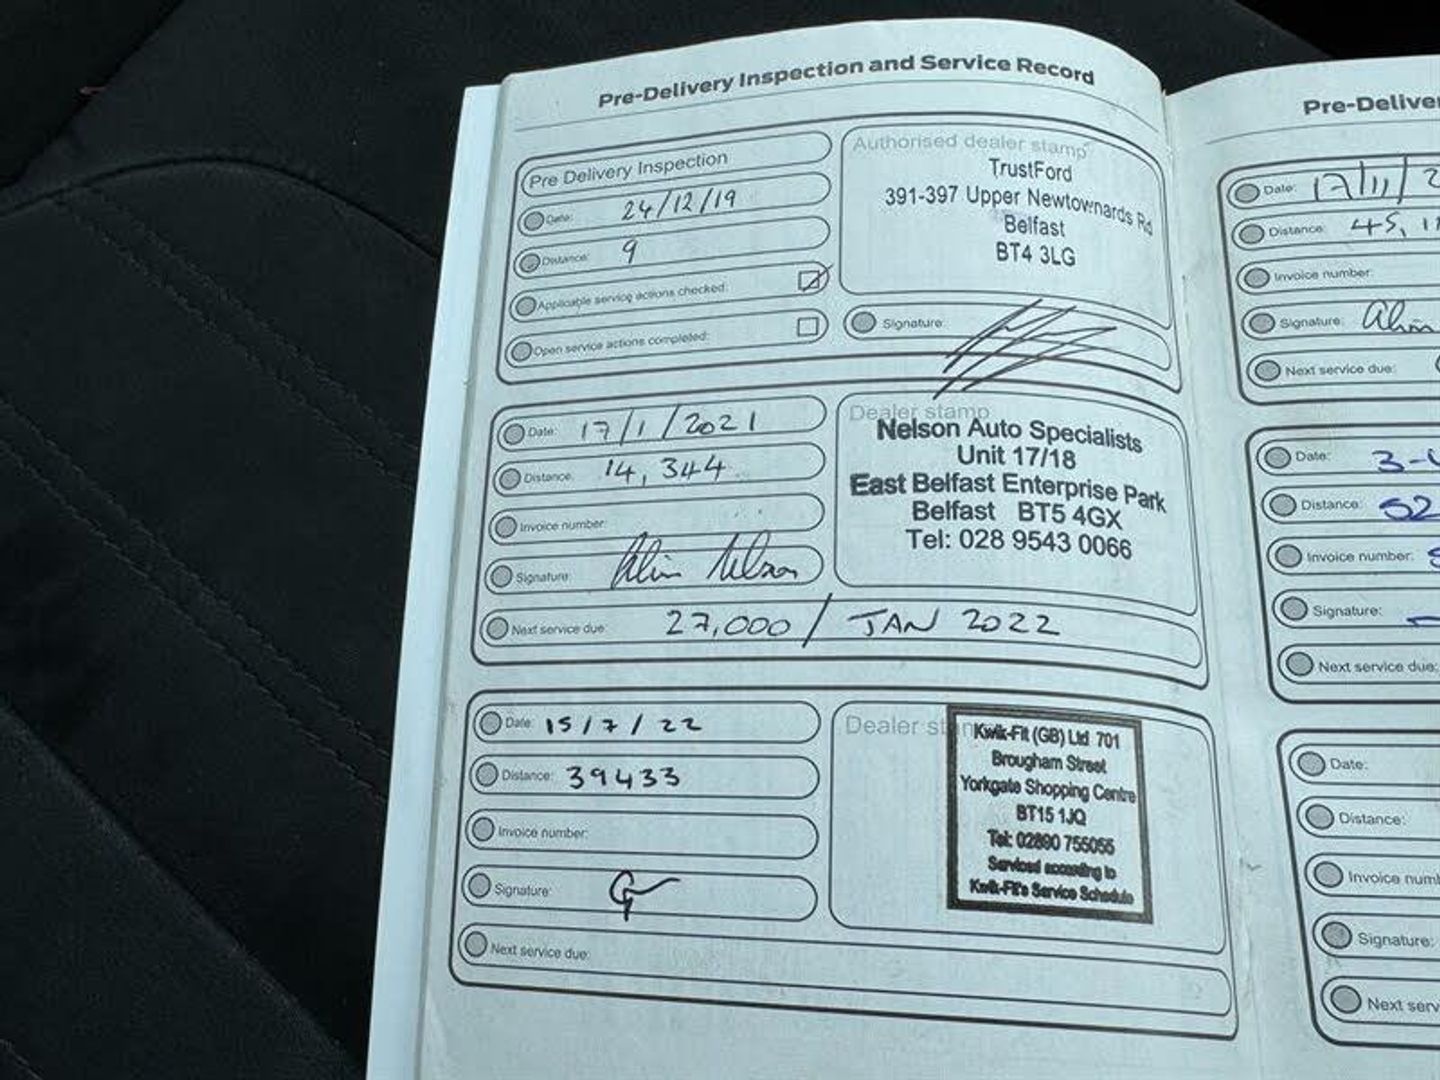 Pre-Delivery Inspection and Service Record
Pre Delivery Inspection
Date: 24/12/19
Distance: 9
Applicable service actions checked:
Open service actions completed:
Authorised dealer stamp
TrustFord
391-397 Upper Newtownards Rd
Belfast
BT4 3LG
Signature:
Date: 17/1/2021
Distance: 14,344
Invoice number:
Signature:
Next service due: 27,000 / JAN 2022
Dealer stamp
Nelson Auto Specialists
Unit 17/18
East Belfast Enterprise Park
Belfast BT5 4GX
Tel: 028 9543 0066
Date: 15/7/22
Distance: 39433
Invoice number:
Signature:
Next service due:
Dealer
Kwik-Fit (GB) Ltd 701
Brougham Street
Yorkgate Shopping Centre
BT15 1JQ
Tel: 02890 755055
Serviced according to
Kwik-Fit's Service Schedule
Date: 17/11/
Distance: 45,
Invoice number:
Signature:
Next service due:
Date:
Distance:
Invoice number:
Signature:
Next service due:
Date:
Distance:
Invoice
Signature:
Next